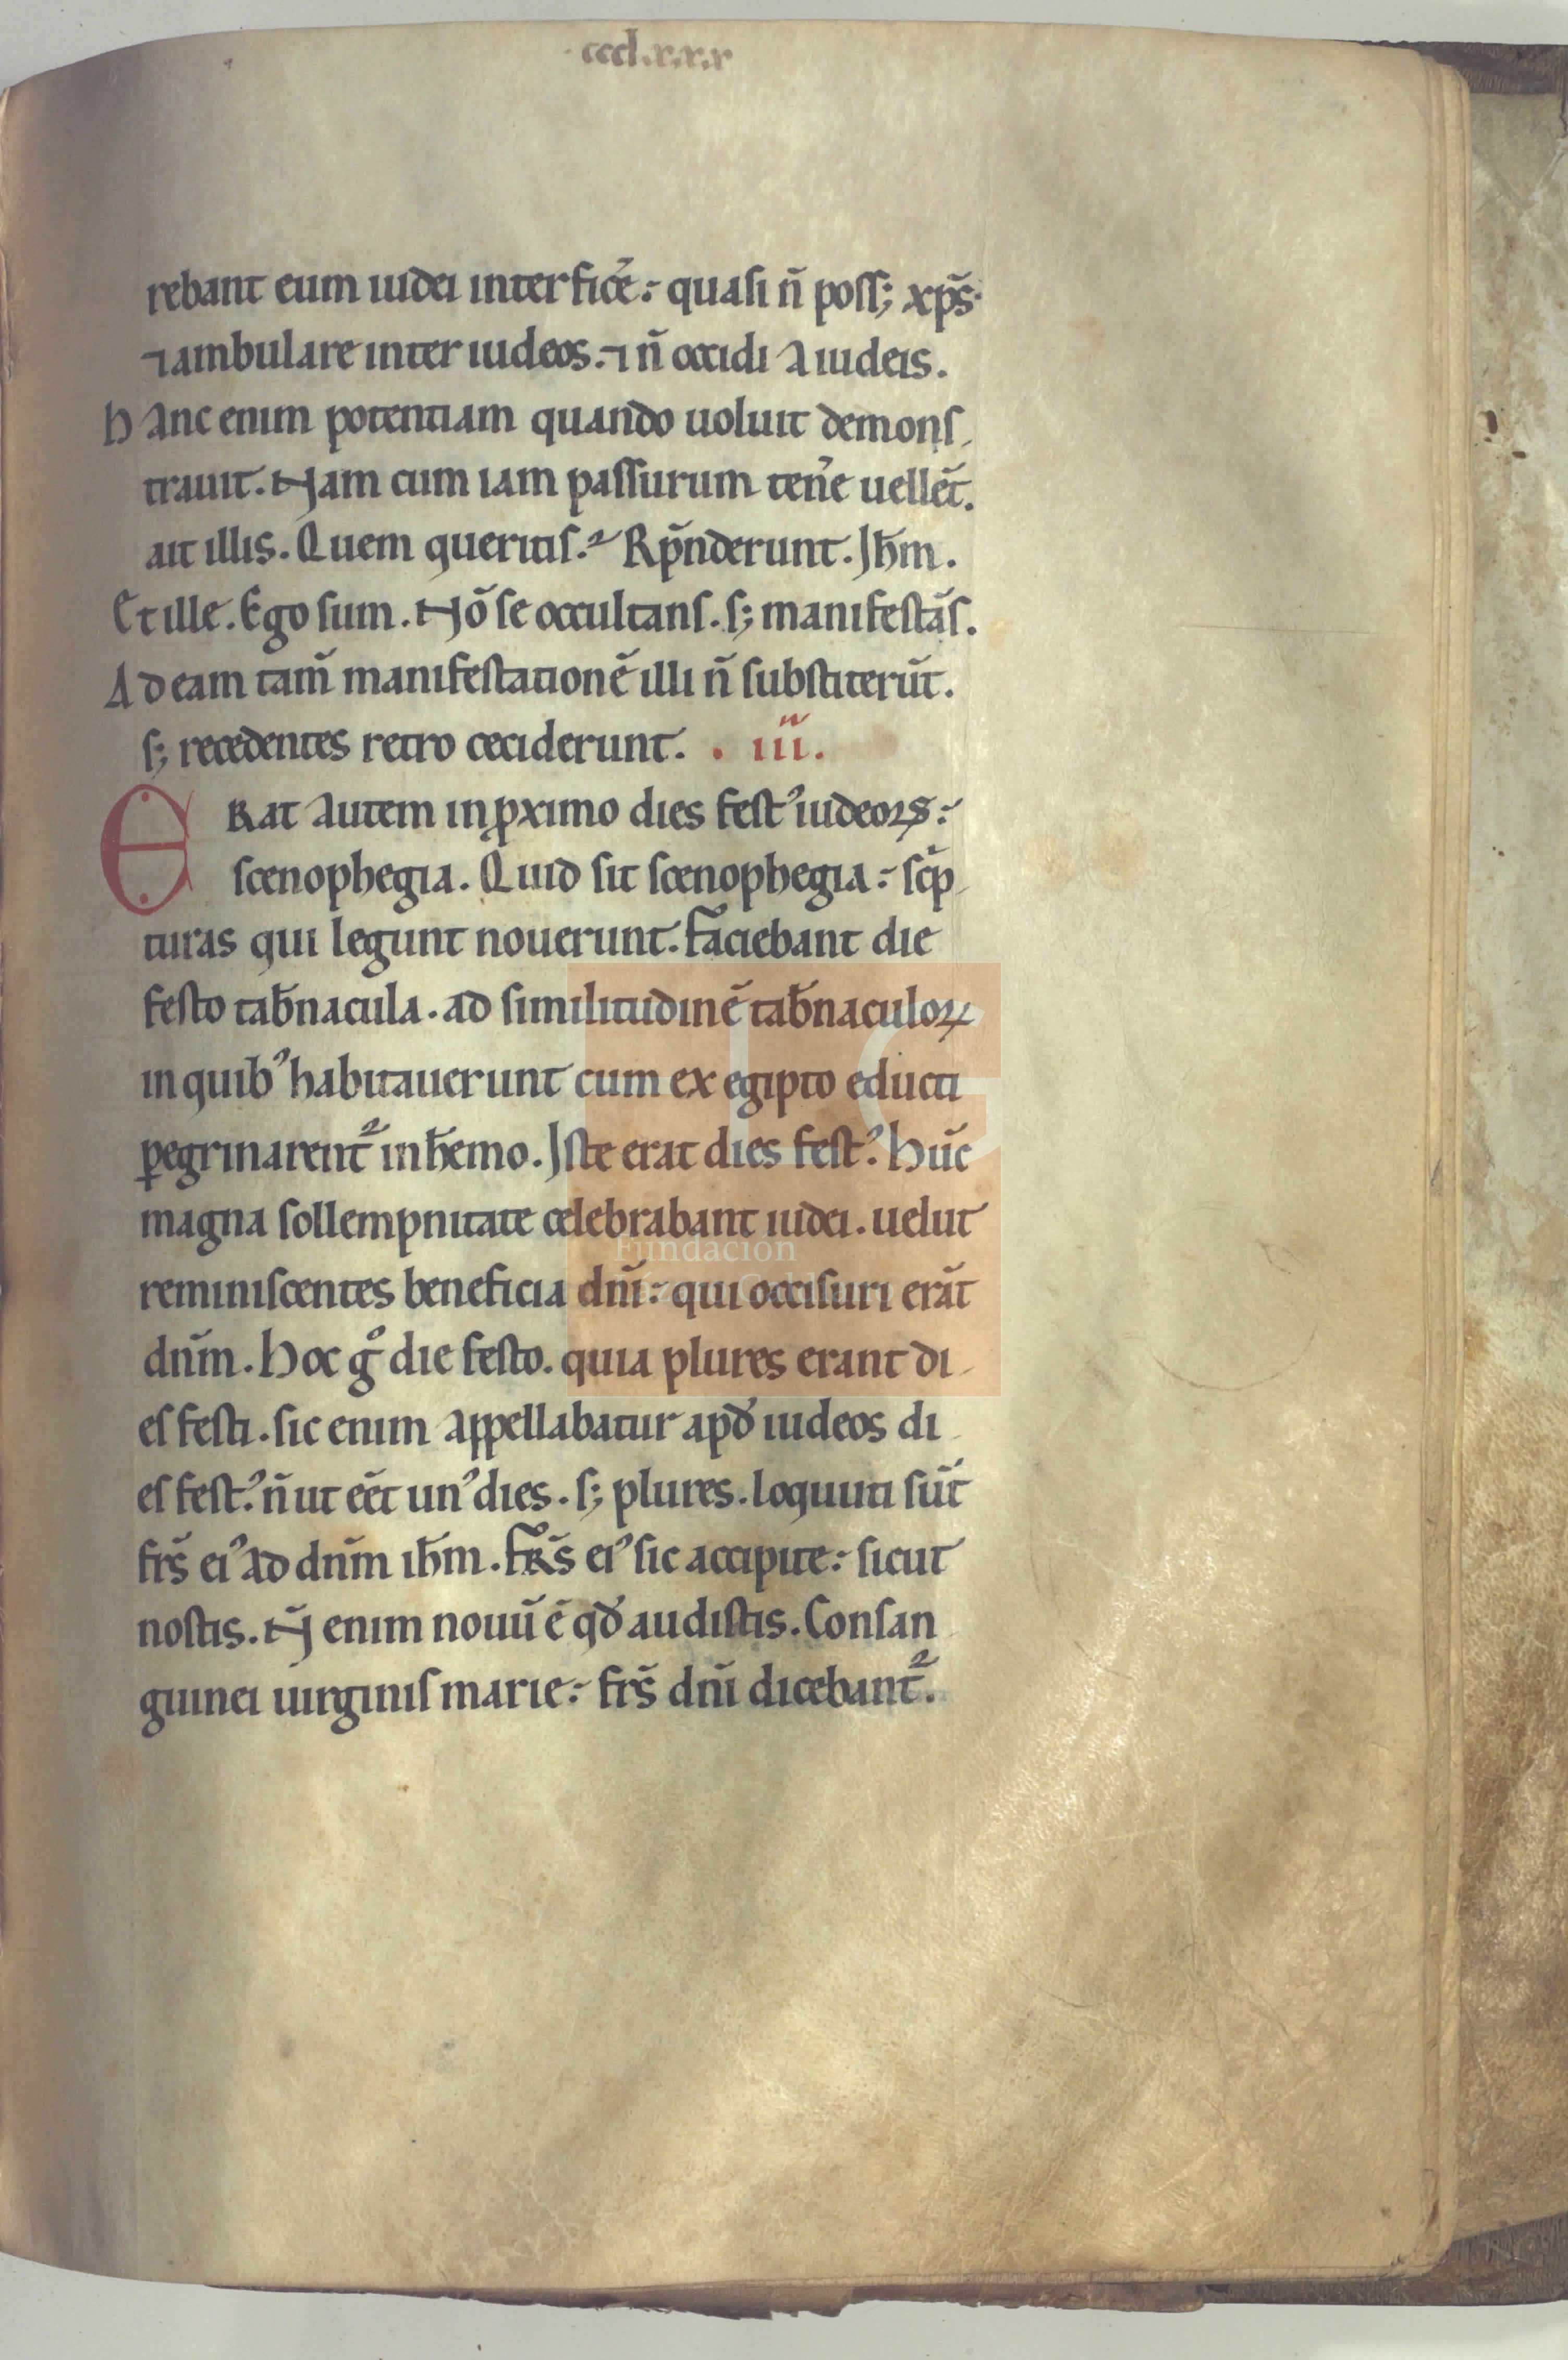 ccclxxx
rebant eum iudei interfice᷑: quasi n̄ poss; xp̄s.
⁊ ambulare inter iudeos. ⁊ n̄ occidi a iudeis.
hanc enim potentiam quando uoluit demonſ
trauit. Nam cum iam paſſurum ten̾e uellēt.
ait illis. Quem queritiſ. Rp̄nderunt. Jh̄m.
Et ille. Ego ſum. Nō ſe occultanſ. ſ; manifeſtāſ.
Ad eam tam̄ manifeſtationē illi n̄ ſubſtiterūt.
ſ; recedentes retro ceciderunt. . iii.
ERat autem in ꝓximo dies feſtꝰ iudeoꝝ:
ſcenophegia. Quid ſit ſcenophegia: ſcͥp
turas qui legunt nouerunt. Faciebant die
feſto tab̄nacula. ad ſimilitudinē tab̄naculoꝝ
in quibꝰ habitauerunt cum ex egipto educti
ꝑegrinarent᷑ in h̄emo. Jſte erat dies feſtꝰ. Hūc
magna ſollempnitate celebrabant iudei. uelut
reminiſcentes beneficia dn̄i: qui occiſuri erāt
dn̄m. Hoc gͦ die feſto. quia plures erant di
eſ feſti. ſic enim appellabatur apđ iudeos di
eſ feſtꝰ. n̄ ut eēt unꝰ dies. ſ; plures. Loquuti ſūt
frs̄ eiꝰ ad dn̄m ih̄m. FRs̄ eiꝰ ſic accipite: ſicut
noſtis. N̄ enim nouū ē qđ audiſtis. Conſan
guinei uirginiſ marie: frs̄ dn̄i dicebant᷑.
Fundación
Lázaro Galdiano